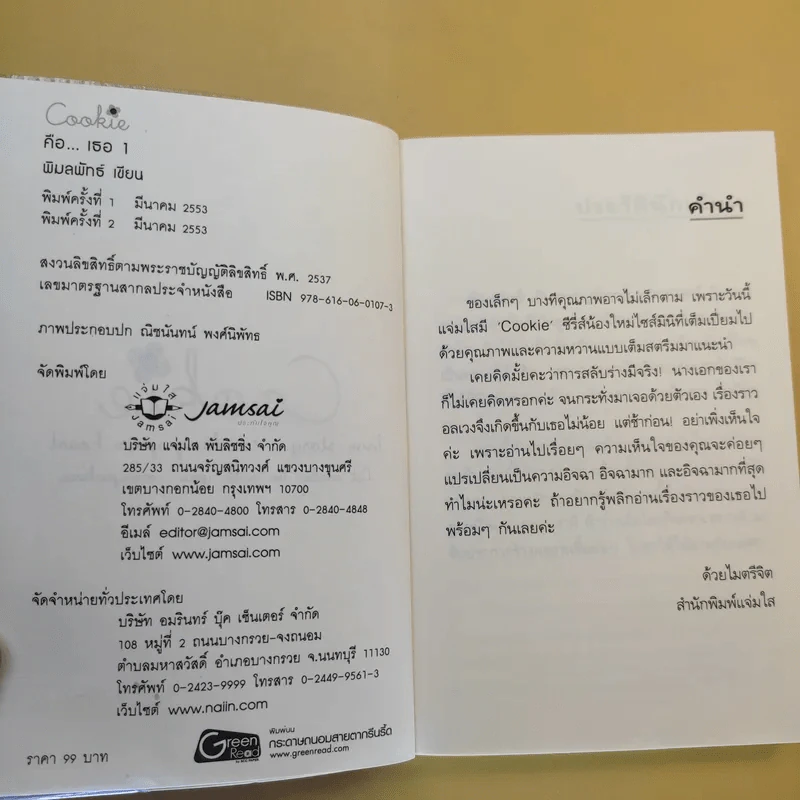 Cookie
คือ... เธอ 1
พิมลพัทธ์ เขียน
พิมพ์ครั้งที่ 1 มีนาคม 2553
พิมพ์ครั้งที่ 2 มีนาคม 2553
สงวนลิขสิทธิ์ตามพระราชบัญญัติลิขสิทธิ์ พ.ศ. 2537
เลขมาตรฐานสากลประจำหนังสือ ISBN 978-616-06-0107-3
ภาพประกอบปก ณิชนันทน์ พงศ์นิพัทธ
จัดพิมพ์โดย
แจ่มใส
Jamsai
Jamsai
บริษัท แจ่มใส พับลิชชิ่ง จำกัด
285/33 ถนนจรัญสนิทวงศ์ แขวงบางขุนศรี
เขตบางกอกน้อย กรุงเทพฯ 10700
โทรศัพท์ 0-2840-4800 โทรสาร 0-2840-4848
อีเมล์ editor@jamsai.com
เว็บไซต์ www.jamsai.com
จัดจำหน่ายทั่วประเทศโดย
บริษัท อมรินทร์ บุ๊ค เซ็นเตอร์ จำกัด
108 หมู่ที่ 2 ถนนบางกรวย-จงถนอม
ตำบลมหาสวัสดิ์ อำเภอบางกรวย จ.นนทบุรี 11130
โทรศัพท์ 0-2423-9999 โทรสาร 0-2449-9561-3
เว็บไซต์ www.naiin.com
ราคา 99 บาท
Green
Read
พิมพ์บน
กระดาษถนอมสายตากรีนรี้ด
www.greenread.com
คำนำ
ของเล็กๆ บางทีคุณภาพอาจไม่เล็กตาม เพราะวันนี้
แจ่มใสมี 'Cookie' ซีรี่ส์น้องใหม่ไซส์มินิที่เต็มเปี่ยมไป
ด้วยคุณภาพและความหวานแบบเต็มสตรีมมาแนะนำ
เคยคิดมั้ยคะว่าการสลับร่างมีจริง! นางเอกของเรา
ก็ไม่เคยคิดหรอกค่ะ จนกระทั่งมาเจอด้วยตัวเอง เรื่องราว
อลเวงจึงเกิดขึ้นกับเธอไม่น้อย แต่ช้าก่อน! อย่าเพิ่งเห็นใจ
ค่ะ เพราะอ่านไปเรื่อยๆ ความเห็นใจของคุณจะค่อยๆ
แปรเปลี่ยนเป็นความอิจฉา อิจฉามาก และอิจฉามากที่สุด
ทำไมน่ะเหรอคะ ถ้าอยากรู้พลิกอ่านเรื่องราวของเธอไป
พร้อมๆ กันเลยค่ะ
ด้วยไมตรีจิต
สำนักพิมพ์แจ่มใส